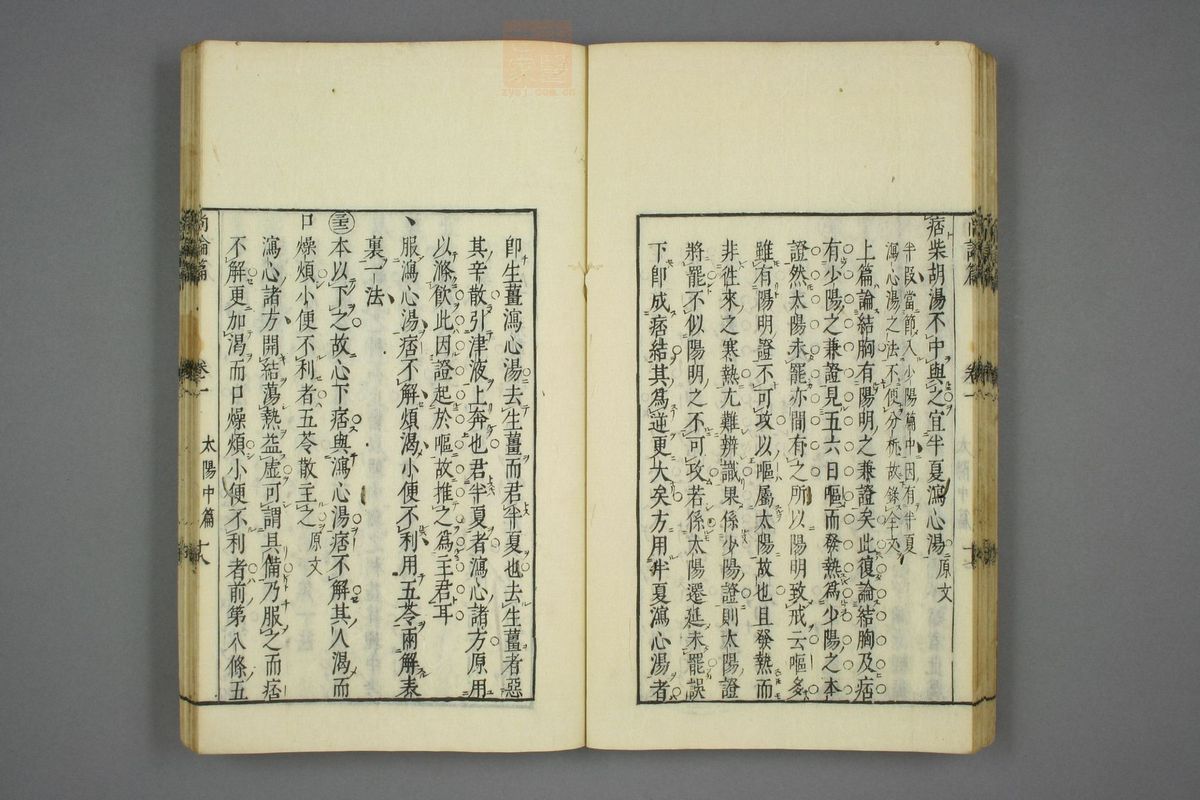 痞柴胡湯不中與之宜半夏瀉心湯 原文
半叚當節入少陽篇中因有半夏
瀉心湯之法不便分析故錄全文
上篇論結胸有陽明之兼證矣此復論結胸及痞
有少陽之兼證見五六日嘔而發熱爲少陽之本
證然太陽未罷亦間有之所以陽明致戒云嘔多
雖有陽明證不可攻以嘔屬太陽故也且發熱而
非徃來之寒熱尤難辨識果係少陽證則太陽證
將罷不似陽明之不可攻若係太陽遷延未罷誤
下卽成痞結其爲逆更大矣方用半夏瀉心湯者
卽生薑瀉心湯去生薑而君半夏也去生薑者惡
其辛散引津液上奔也君半夏者瀉心諸方原用
以滌飲此因證起於嘔故推之爲主君耳
服瀉心湯痞不解煩渴小便不利用五苓兩解表
裏一法
本以下之故心下痞與瀉心湯痞不解其人渴而
口燥煩小便不利者五苓散主之 原文
瀉心諸方開結蕩熱益虛可謂具備乃服之而痞
不解更加渴而口燥煩小便不利者前第八條五
尚論篇 卷一 太陽中篇
zysj.com.cn